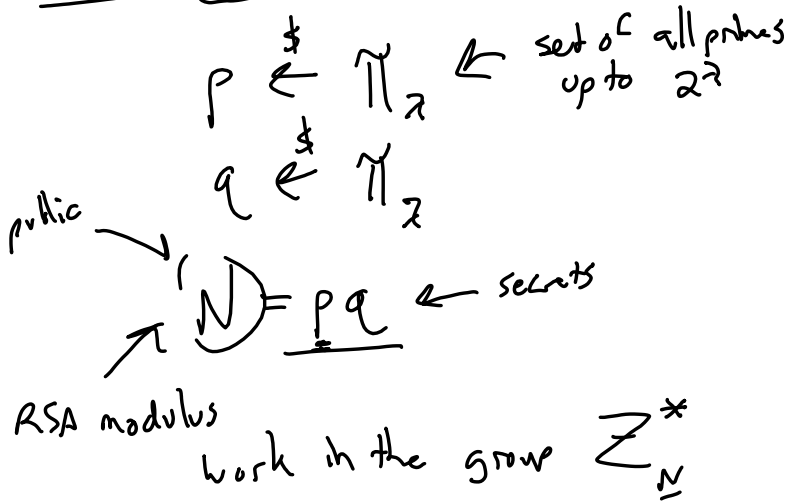 p ←$ Π_λ ← set of all primes
up to 2^λ
q ←$ Π_λ
public
N = pq ← secrets
RSA modulus
work in the group Z*_N